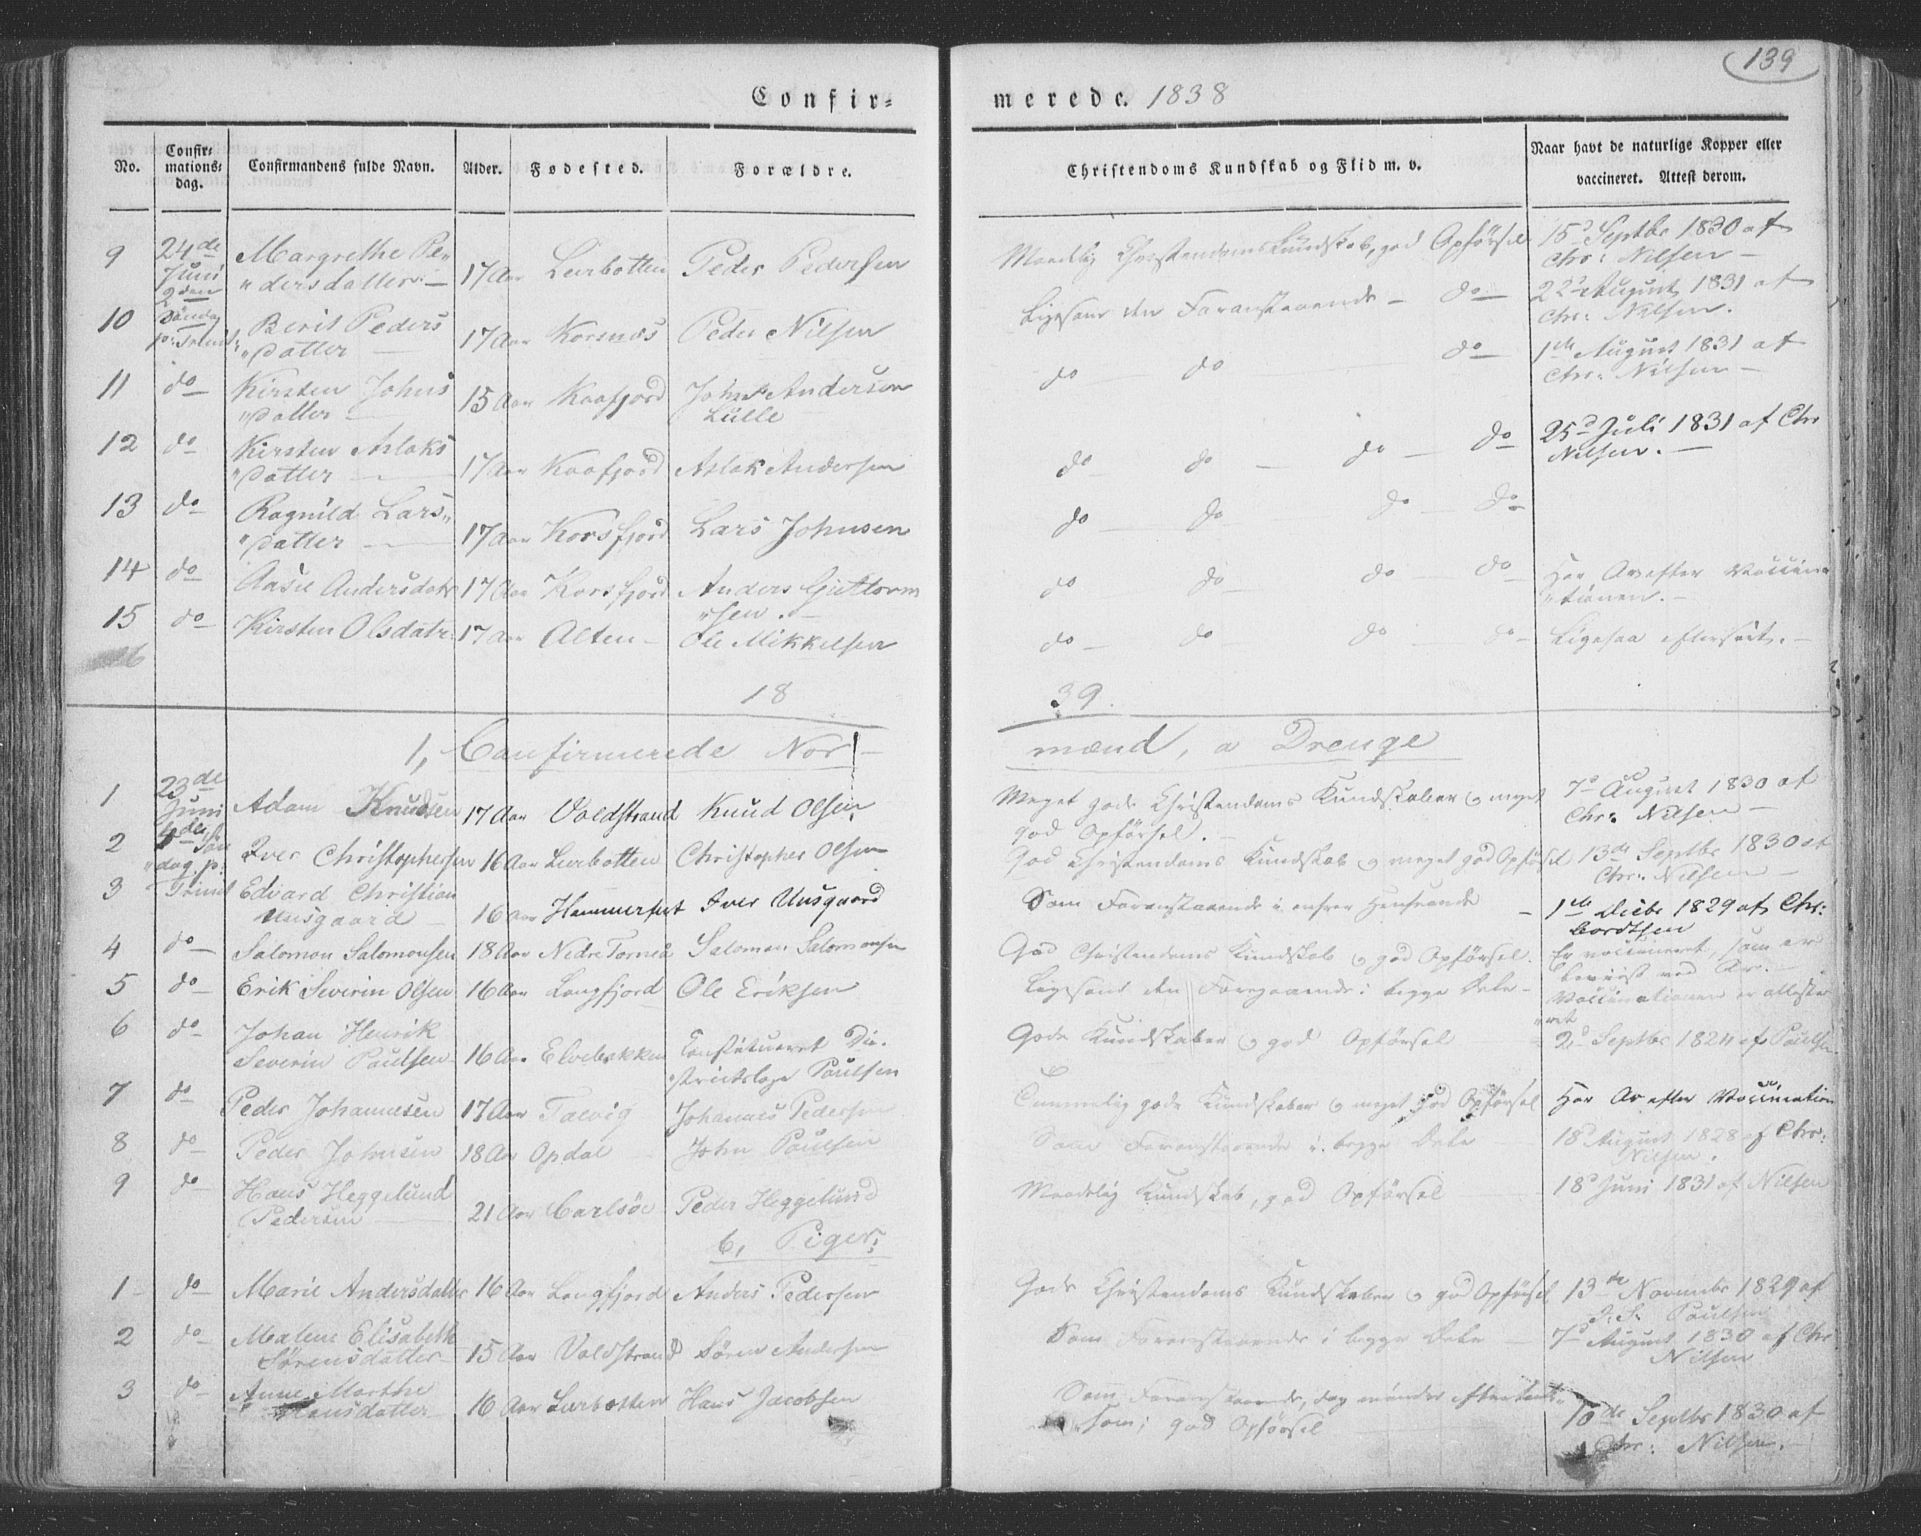 139
Confir=
merede. 1838
No.
Confir-
mations-
dag.
Confirmandens fulde Navn.
Alder.
Fødested.
Forældre.
Christendoms Kundskab og Flid m. v.
Naar havt de naturlige Kopper eller
vaccineret. Attest derom.
9 24de Juni Margrethe Pe„ „dersdatter 17 Aar Leirbotten Peder Pedersen Maadelig Christendomskundskab, god Opførsel 15d Septbr 1830 af Chr: Nilsen
10 Søndag Berit Peders „datter 17 Aar Korsnæs Peder Nilsen Ligesom den Foranstaaende do 22d August 1831 af Chr: Nilsen.
11 do Kirsten Johns „datter 15 Aar Kaafjord John Andersen Lülle do do do 1ste August 1831 af Chr: Nilsen
12 do Kirsten Aslaks „datter 17 Aar Kaafjord Aslak Andersen do do do do 25d Juli 1831 af Chr Nilsen.
13 do Ragnild Lars„ „datter 17 Aar Korsfjord Lars Johnsen do do do do
14 do Aasie Andersdatr 17 Aar Korsfjord Anders Guttorm „sen. do do do do Har Ar efter Vaccina „tionen.
15 do Kirsten Olsdatr: 17 Aar Alten Ole Mikkelsen do do do do Ligesaa
18
39.
1, Confirmerede Nor
mænd, a Drenge
1 23de Juni Adam Knudsen 17 Aar Valdstrand Knud Olsen Meget gode Christendoms Kundskaber og meget god Opførsel. 7d August 1830 af Chr: Nilsen
2 dag p: Iver Christophersen 16 Aar Leirbotten Christopher Olsen God Christendoms Kundskab og meget god Opførsel 13de Septbr 1830 af Chr: Nilsen
3 Trinit Edvard Christian Unsgaard 16 Aar Hammerfest Iver Unsgaard Som Foranstaaende i enhver Henseende 1ste Decbr 1829 af Chr: Cordtsen
4 do Salomon Salomonsen 18 Aar Nedre Torneå Salomon Salomonsen God Christendoms Kundskab og god Opførsel. Er vaccineret, som er beviist ved Ar.
5 do Erik Severin Olsen 16 Aar Langfjord Ole Eriksen Ligesom den Foregaaende i begge Dele Vaccinationen er atteste „ret
6 do Johan Henrik Severin Paulsen 16 Aar Elvebakken Constitueret Di„ „strictslæge Paulsen Gode Kundskaber og god Opførsel 2d Septbr 1824 af Paulsen
7 do Peder Johannesen 17 Aar Talvig Johannes Pedersen gode Kundskaber og meget god Opførsel Har Ar efter Vaccination
8 do Peder Johnsen 18 Aar Opdal John Paulsen Som Foranstaaende i begge Dele 18d August 1828 af Chr: Nilsen.
9 do Hans Heggelund Pedersen 21 Aar Carlsöe Peder Heggelund Maadelig Kundskab, god Opførsel 18d Juni 1831 af Nilsen
b, Piger:
1 do Marie Andersdatter 16 Aar Langfjord Anders Pedersen Gode Christendoms Kundskaber og god Opførsel 13de Novembr 1829 af Paulsen
2 do Malene Elisabeth Sørensdatter 15 Aar Valdstrand Søren Andersen Som Foranstaaende i begge Dele 7d August 1830 af Chr Nilsen
3 do Anne Marthe Hansdatter 16 Aar Leirbotten Hans Jacobsen Som Foranstaaende, dog mindre eftertænk„ „som; god Opførsel 10de Septbr 1830 af Chr: Nilsen.